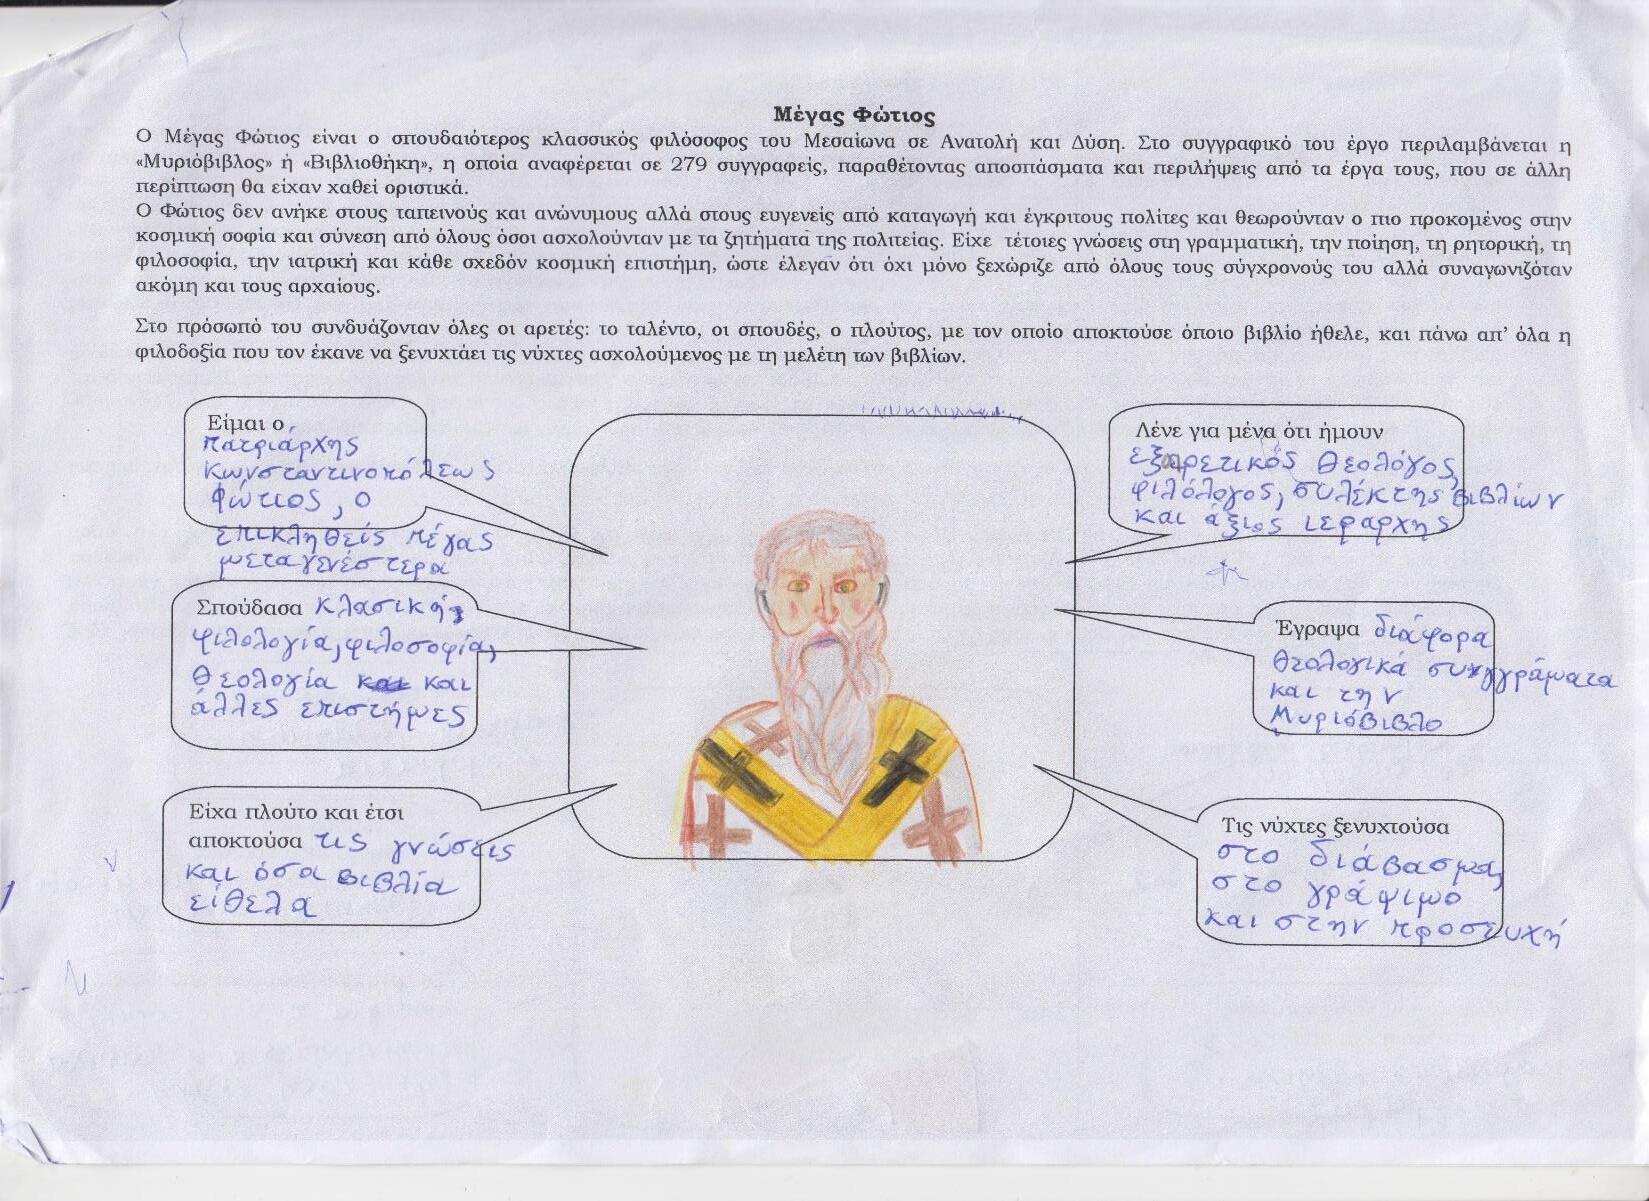 Μέγας Φώτιος
Ο Μέγας Φώτιος είναι ο σπουδαιότερος κλασσικός φιλόσοφος του Μεσαίωνα σε Ανατολή και Δύση. Στο συγγραφικό του έργο περιλαμβάνεται η
«Μυριόβιβλος» ή «Βιβλιοθήκη», η οποία αναφέρεται σε 279 συγγραφείς, παραθέτοντας αποσπάσματα και περιλήψεις από τα έργα τους, που σε άλλη
περίπτωση θα είχαν χαθεί οριστικά.
Ο Φώτιος δεν ανήκε στους ταπεινούς και ανώνυμους αλλά στους ευγενείς από καταγωγή και έγκριτους πολίτες και θεωρούνταν ο πιο προκομένος στην
κοσμική σοφία και σύνεση από όλους όσοι ασχολούνταν με τα ζητήματα της πολιτείας. Είχε τέτοιες γνώσεις στη γραμματική, την ποίηση, τη ρητορική, τη
φιλοσοφία, την ιατρική και κάθε σχεδόν κοσμική επιστήμη, ώστε έλεγαν ότι όχι μόνο ξεχώριζε από όλους τους σύγχρονούς του αλλά συναγωνιζόταν
ακόμη και τους αρχαίους.
Στο πρόσωπό του συνδυάζονταν όλες οι αρετές: το ταλέντο, οι σπουδές, ο πλούτος, με τον οποίο αποκτούσε όποιο βιβλίο ήθελε, και πάνω απ’ όλα η
φιλοδοξία που τον έκανε να ξενυχτάει τις νύχτες ασχολούμενος με τη μελέτη των βιβλίων.
Είμαι ο
πατριάρχης
Κωνσταντινοπόλεως
Φώτιος, ο
επικληθείς Μέγας
μεταγενέστερα
Σπούδασα κλασική
φιλολογία, φιλοσοφία,
θεολογία και
άλλες επιστήμες
Είχα πλούτο και έτσι
αποκτούσα τις γνώσεις
και όσα βιβλία
είθελα
Λένε για μένα ότι ήμουν
εξαρετικός θεολόγος,
φιλόλογος, συλέκτης βιβλίων
και άξιος ιεράρχης
Έγραψα διάφορα
θεολογικά συγγράματα
και την
Μυριόβιβλο
Τις νύχτες ξενυχτούσα
στο διάβασμα,
στο γράψιμο
και στην προσευχή